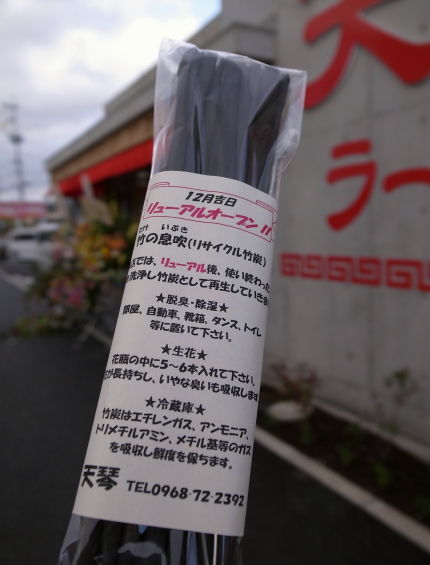 12月吉日
リューアルオープン!!
たけ いぶき
竹の息吹(リサイクル竹炭)
では、リューアル後、使い終わった
洗浄し竹炭として再生していきま
★脱臭・除湿★
部屋、自動車、靴箱、タンス、トイレ
等に置いて下さい。
★生花★
花瓶の中に5～6本入れて下さい。
が長持ちし、いやな臭いも吸収します
★冷蔵庫★
竹炭はエチレンガス、アンモニア、
トリメチルアミン、メチル基等のガス
を吸収し鮮度を保ちます。
天琴 TEL0968-72-2392
天
ラー